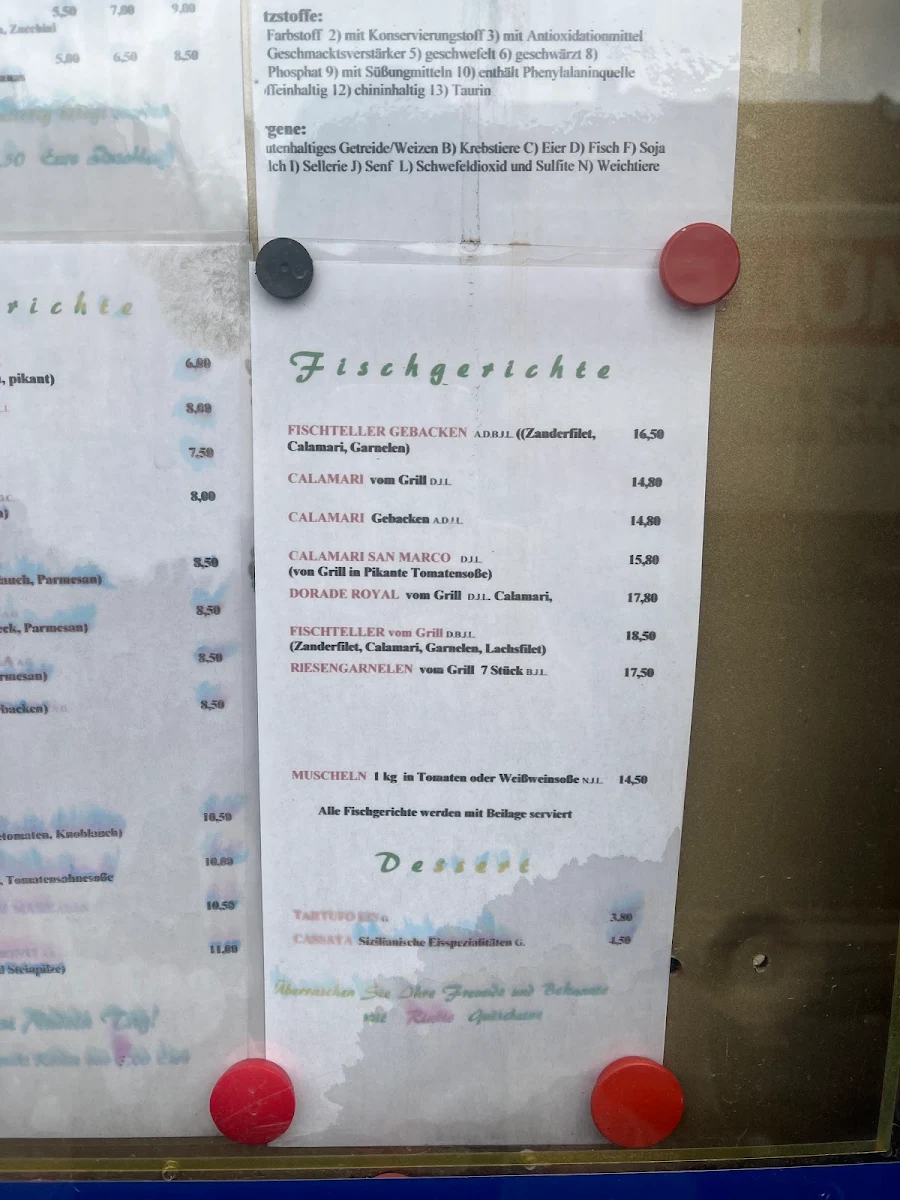 5,50 7,00 9,00
5,00 6,50 8,50
tzstoffe:
Farbstoff 2) mit Konservierungstoff 3) mit Antioxidationmittel
Geschmacktsverstärker 5) geschwefelt 6) geschwärzt 8)
Phosphat 9) mit Süßungmitteln 10) enthält Phenylalaninquelle
ffeinhaltig 12) chininhaltig 13) Taurin
gene:
utenhaltiges Getreide/Weizen B) Krebstiere C) Eier D) Fisch F) Soja
lch I) Sellerie J) Senf L) Schwefeldioxid und Sulfite N) Weichtiere
richte
6,00
, pikant)
8,00
7,50
8,00
8,50
auch, Parmesan)
8,50
eck, Parmesan)
8,50
rmesan)
8,50
backen)
10,50
etomaten, Knoblauch)
10,00
, Tomatensahnesoße
10,50
11,00
d Steinpilze)
Fischgerichte
FISCHTELLER GEBACKEN A.D.B.J.L ((Zanderfilet, 16,50
Calamari, Garnelen)
CALAMARI vom Grill D.J.L 14,80
CALAMARI Gebacken A.D.J.L 14,80
CALAMARI SAN MARCO D.J.L 15,80
(von Grill in Pikante Tomatensoße)
DORADE ROYAL vom Grill D.J.L. Calamari, 17,80
FISCHTELLER vom Grill D.B.J.L 18,50
(Zanderfilet, Calamari, Garnelen, Lachsfilet)
RIESENGARNELEN vom Grill 7 Stück B.J.L 17,50
MUSCHELN 1 kg in Tomaten oder Weißweinsoße N.J.L 14,50
Alle Fischgerichte werden mit Beilage serviert
Dessert
TARTUFO EIS G 3,80
CASSATA Sizilianische Eisspezialitäten G. 4,50
Überraschen Sie Ihre Freunde und Bekannte